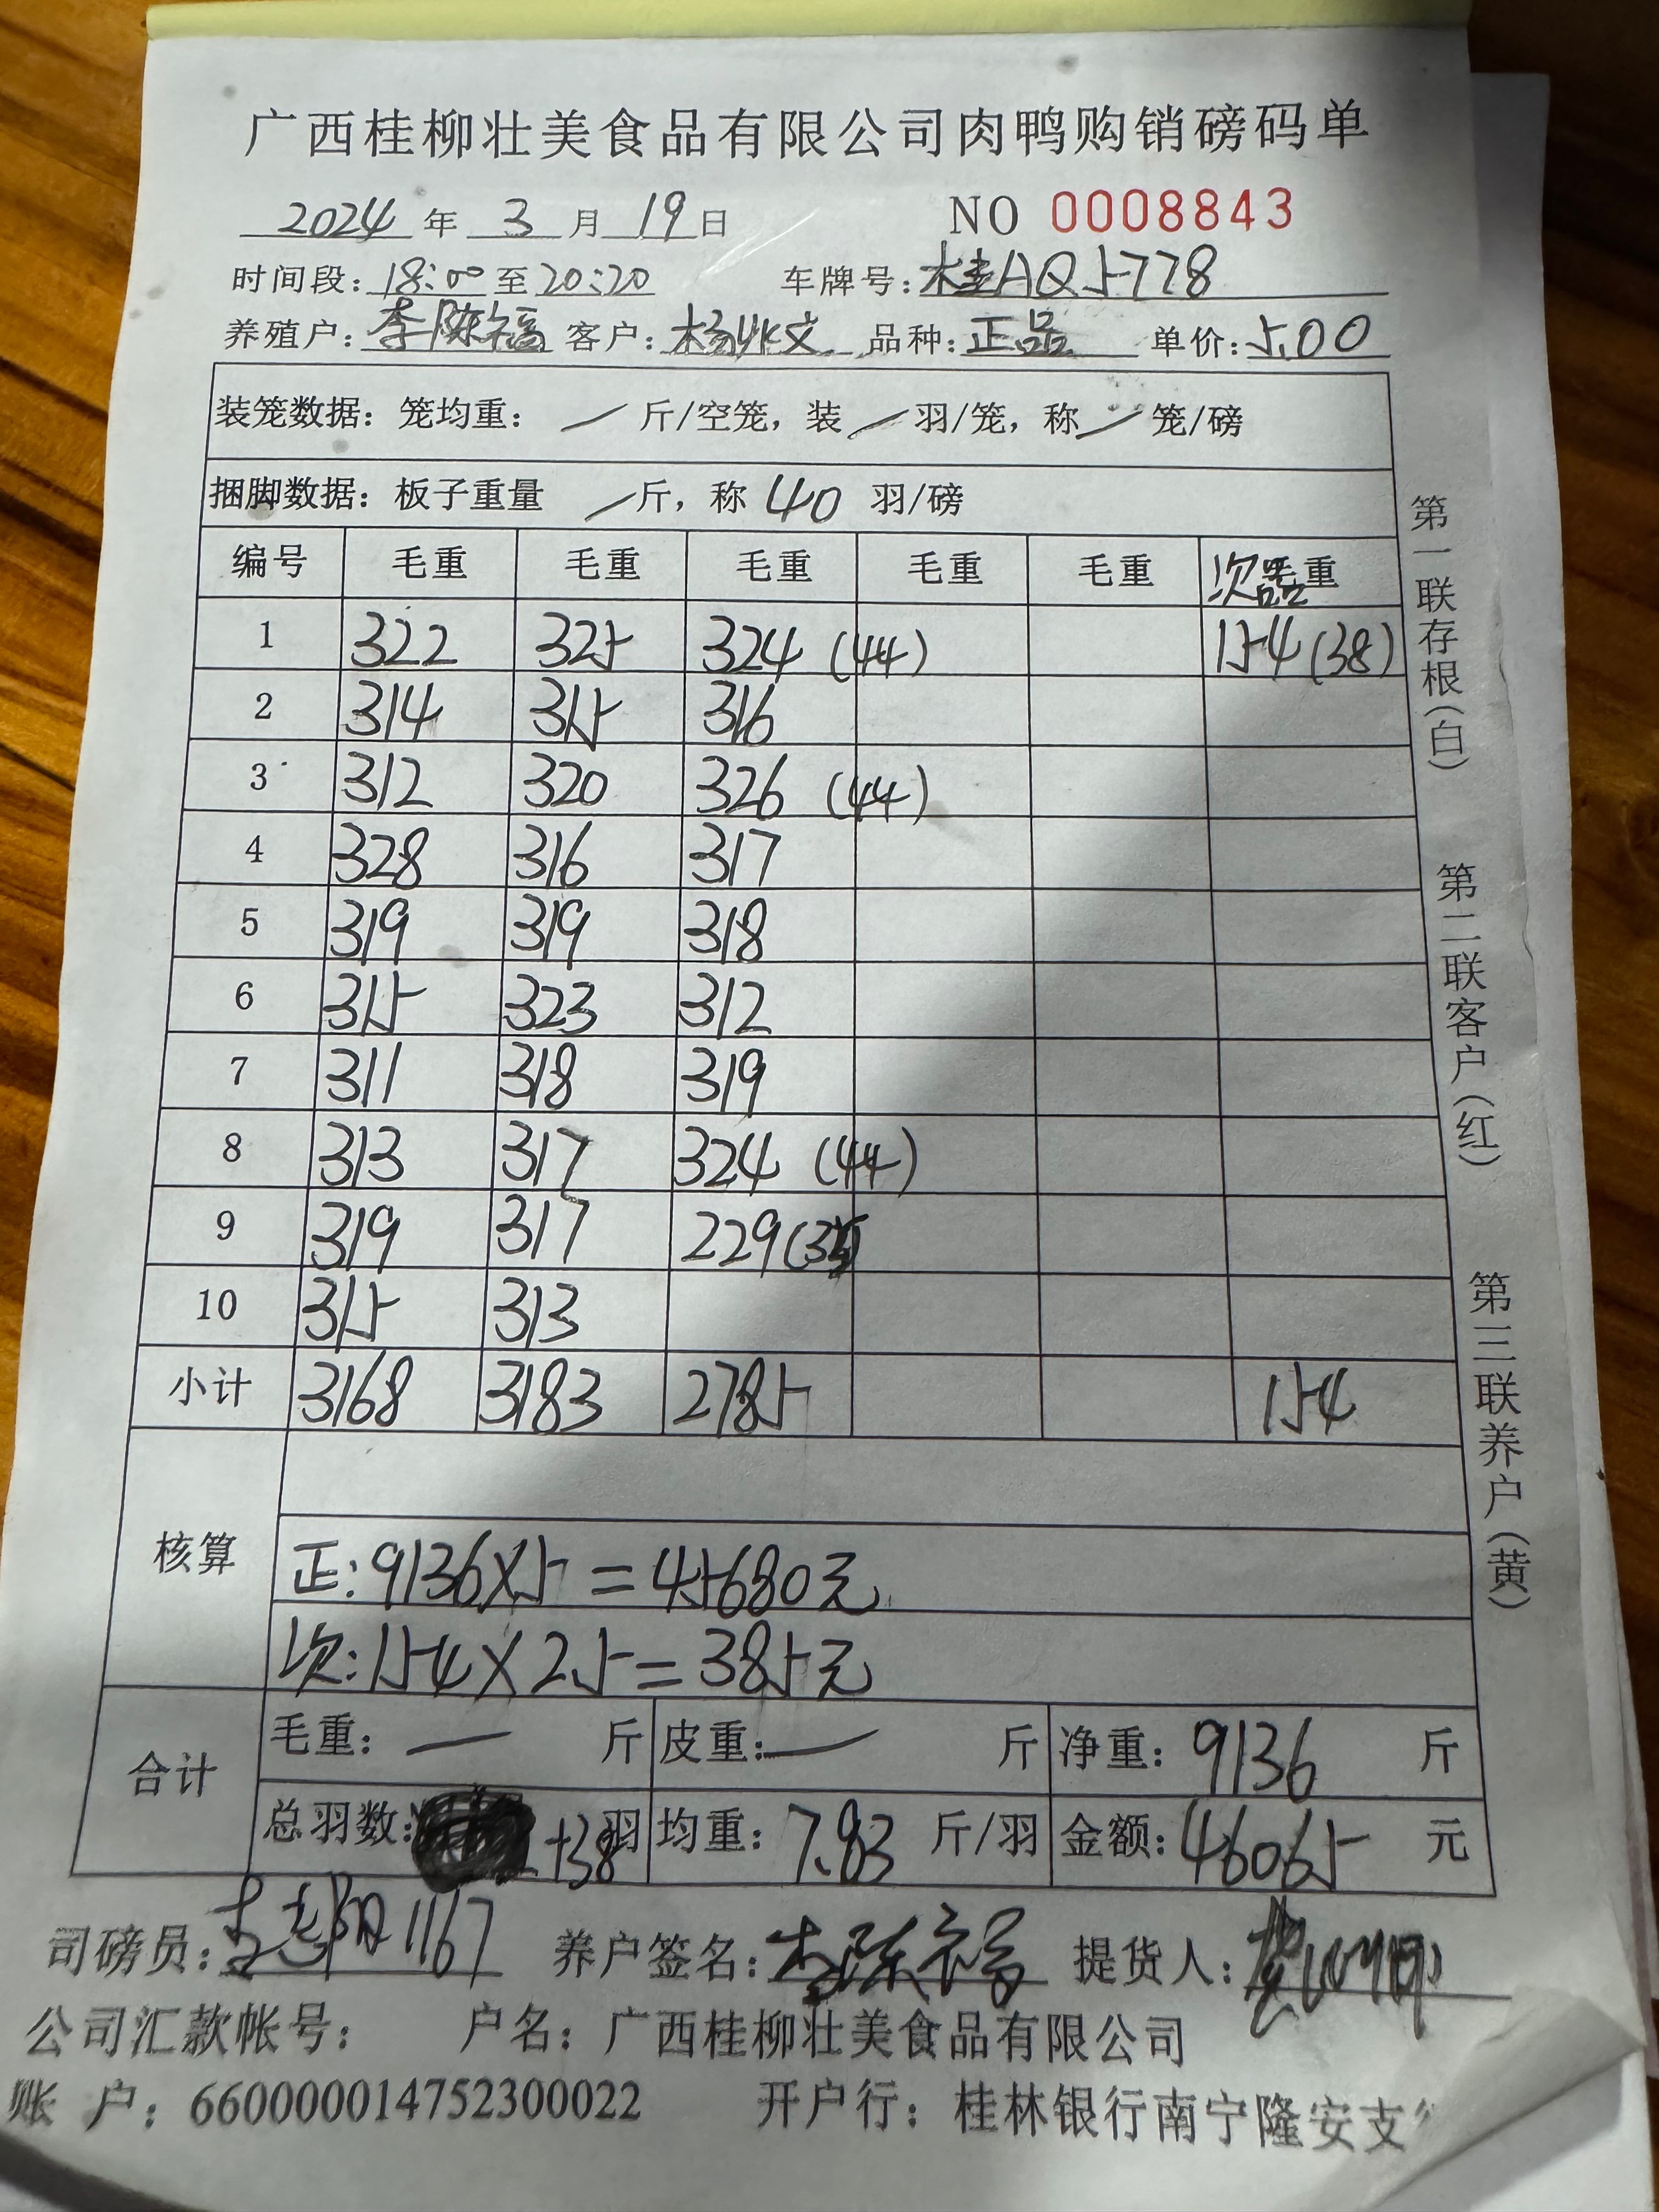 广西桂柳壮美食品有限公司肉鸭购销磅码单
2024 年 3 月 19 日 NO 0008843
时间段: 18:00 至 20:20 车牌号: 桂AQ5778
养殖户: 李陈福 客户: 杨 文 品种: 正品 单价: 5.00
装笼数据: 笼均重: — 斤/空笼, 装 — 羽/笼, 称 — 笼/磅
捆脚数据: 板子重量 — 斤, 称 40 羽/磅
编号 毛重 毛重 毛重 毛重 毛重 次品 重
1 322 325 324 (44) 154 (38)
2 314 315 316
3 312 320 326 (44)
4 328 316 317
5 319 319 318
6 315 323 312
7 311 318 319
8 313 317 324 (44)
9 319 317 229
10 315 313
小计 3168 3183 2785 154
核算
正: 9136×5=45680元
次: 154×25=385元
合计
毛重: — 斤 皮重: — 斤 净重: 9136 斤
总羽数: +38 羽 均重: 7.83 斤/羽 金额: 46065 元
司磅员: 志阳 1167 养户签名: 李陈福 提货人:
公司汇款帐号: 户名: 广西桂柳壮美食品有限公司
账 户: 660000014752300022 开户行: 桂林银行南宁隆安支
第一联存根(白)
第二联客户(红)
第三联养户(黄)